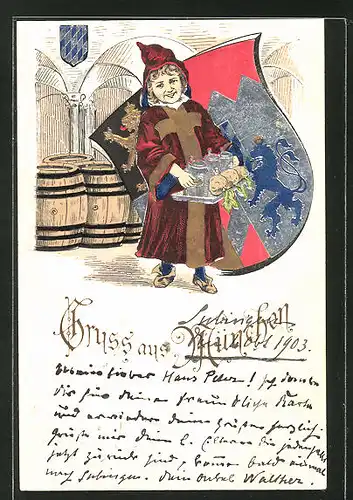 Gruss aus München
1903.
Mein lieber Hans Peter! Ich danke
dir für deine freundliche Karte
und erwidere deine Grüsse herzlich.
Grüsse mir deine l. Eltern die
jetzt zurück sind, komme bald einmal
nach Dein Onkel Walther.